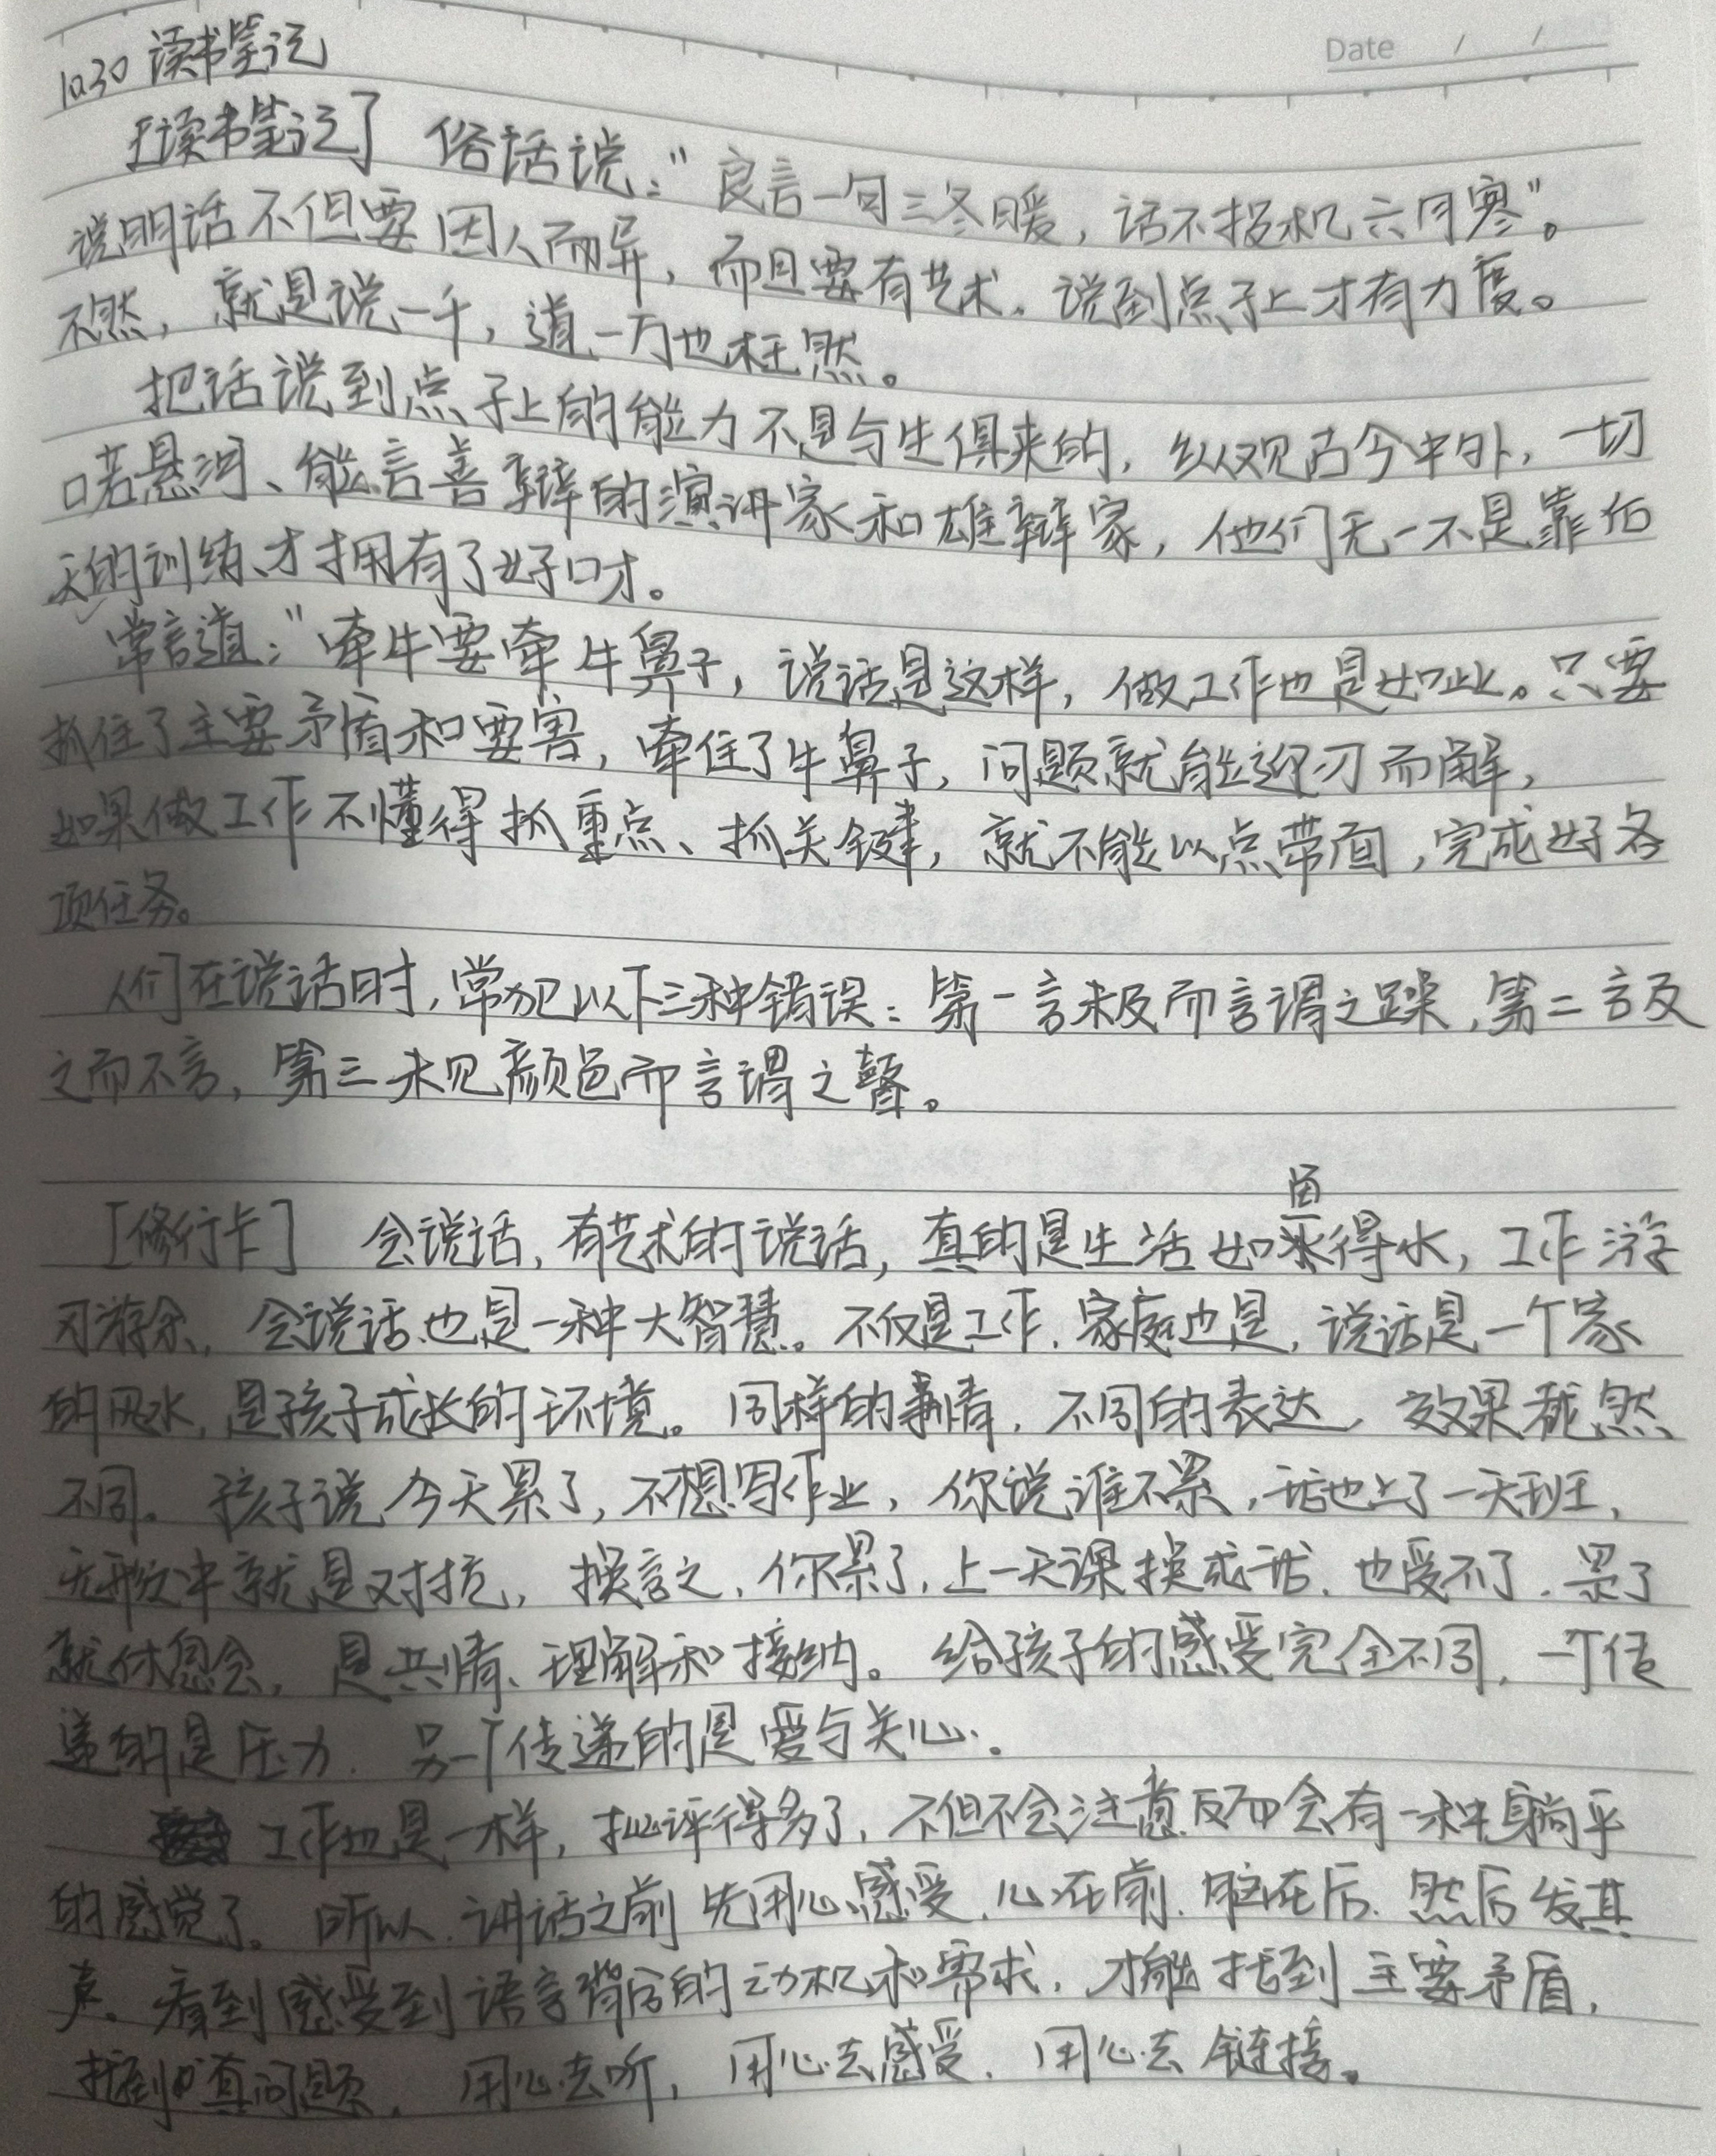 Date / /
10.30 读书笔记
[读书笔记] 俗话说:"良言一句三冬暖,话不投机六月寒"。
说明话不但要因人而异,而且要有艺术。说到点子上才有力度。
不然,就是说一千,道一万也枉然。
把话说到点子上的能力不是与生俱来的,纵观古今中外,一切
口若悬河、能言善辩的演讲家和雄辩家,他们无一不是靠后
天的训练、才拥有了好口才。
常言道:"牵牛要牵牛鼻子,说话是这样,做工作也是如此。只要
抓住了主要矛盾和要害,牵住了牛鼻子,问题就能迎刃而解,
如果做工作不懂得抓重点、抓关键,就不能以点带面,完成好各
项任务。
人们在说话时,常犯以下三种错误:第一言未及而言谓之躁,第二言及
之而不言,第三未见颜色而言谓之瞽。
[修行卡] 会说话,有艺术的说话,真的是生活如鱼得水,工作游
刃游余,会说话也是一种大智慧。不仅是工作,家庭也是,说话是一个家
的风水,是孩子成长的环境。同样的事情,不同的表达,效果截然
不同。孩子说今天累了,不想写作业,你说谁不累,我也上了一天班,
无形中就是对抗,换言之,你累了,上一天课换成我,也受不了,累了
就休息会,是共情、理解和接纳。给孩子的感受完全不同,一个传
递的是压力,另一个传递的是爱与关心。
工作也是一样,批评得多了,不但不会注意反而会有一种躺平
的感觉了。所以,讲话之前先用心感受,心在前,脑在后,然后发其
声。看到感受到语言背后的动机和需求,才能找到主要矛盾,
找到真问题,用心去听,用心去感受,用心去链接。